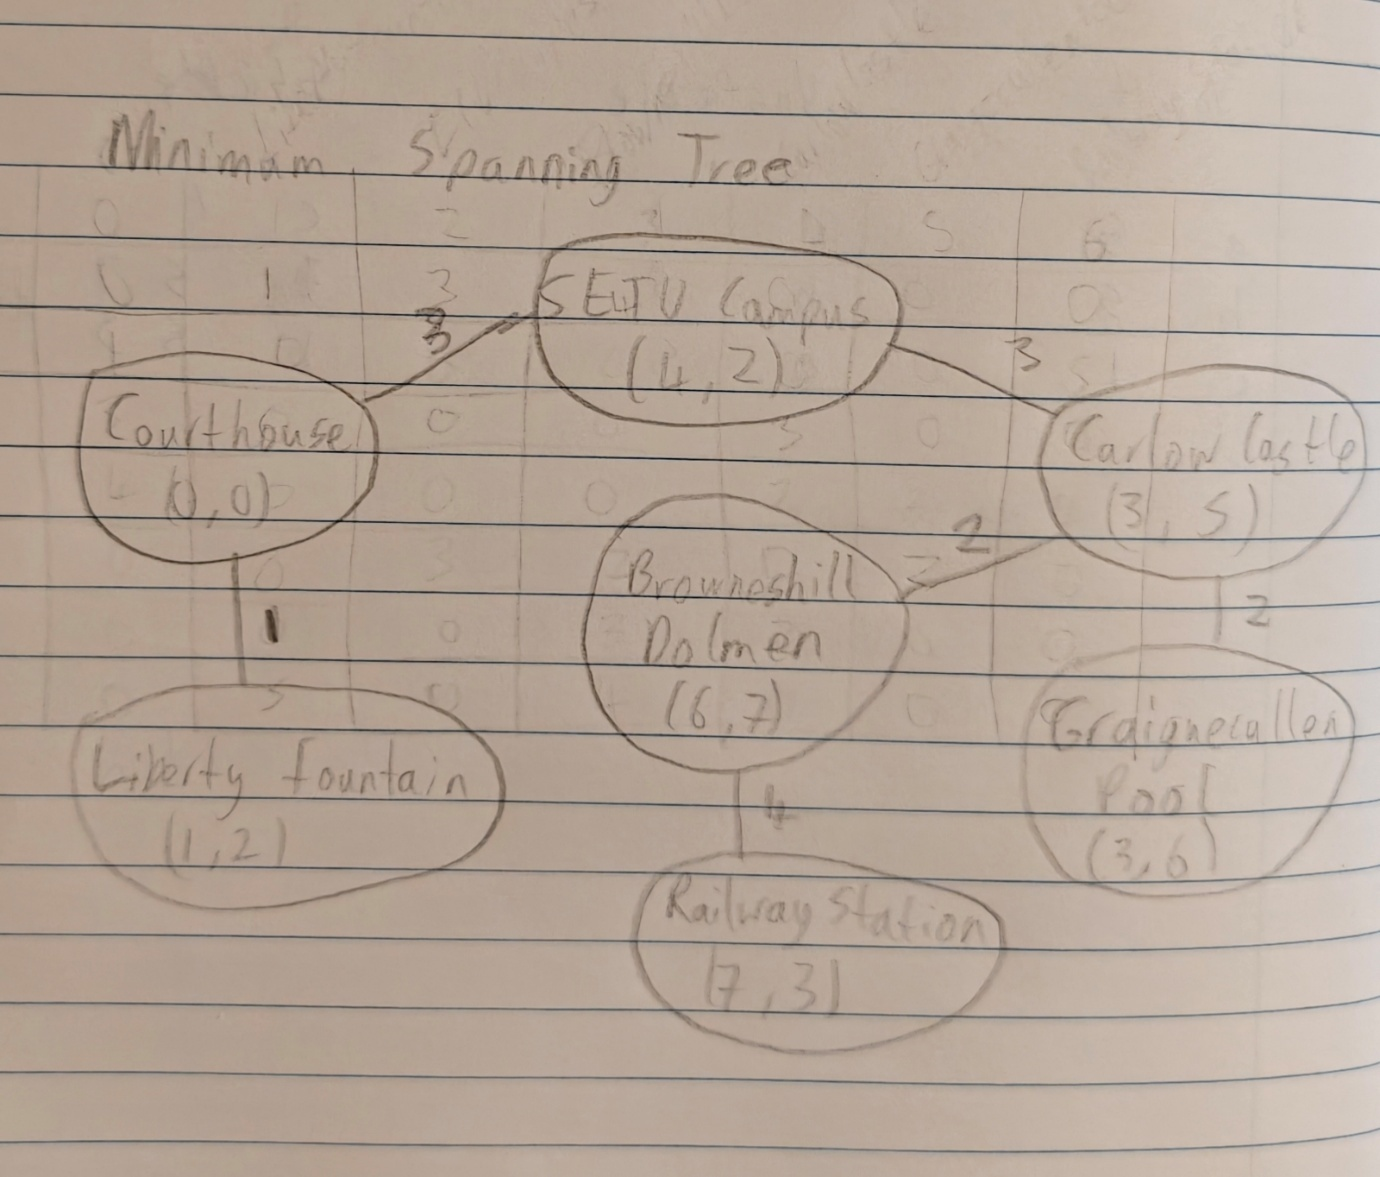 Minimum Spanning Tree
SETU Campus
(4,2)
3
3
Courthouse
(0,0)
Carlow Castle
(3,5)
2
Browneshill
Dolmen
(6,7)
1
2
Liberty fountain
(1,2)
Graiguecullen
Pool
(3,6)
4
Railway Station
(7,3)